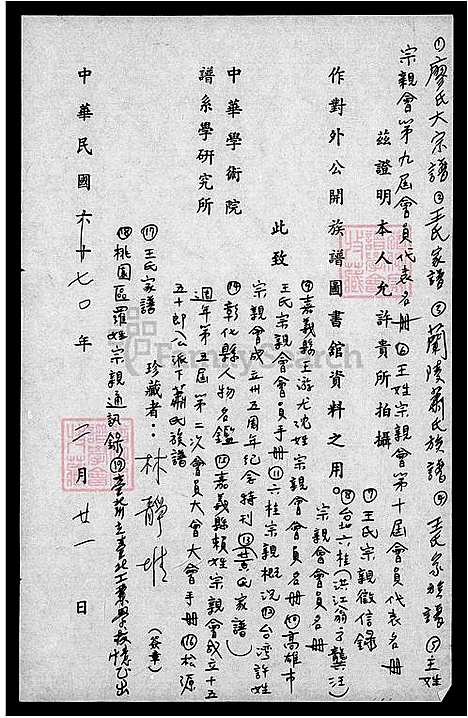 ①廖氏大宗譜②王氏家譜③蘭陵蕭氏族譜④王氏家族譜⑤王姓
宗親會第九屆會員代表名冊⑥王姓宗親會第十屆會員代表名冊
茲證明本人允許貴所拍攝
⑦王氏宗親徵信錄
作對外公開族譜圖書館資料之用。
⑧台北六桂(洪江翁方龔汪)
宗親會會員名冊
此致
⑨嘉義縣王游尤沈姓宗親會會員名冊⑩高雄市
王氏宗親會會員手冊⑪六桂宗親概況⑫台灣許姓
中華學術院
宗親會成立卅五周年紀念特刊⑬黃氏家譜)
譜系學研究所
⑭彰化縣人物名鑑⑮嘉義縣賴姓宗親會成立十五
週年第五屆第二次會員大會大會手冊⑯松源
五十郎公派下蕭氏族譜
珍藏者：林靜堆
(簽章)
⑰王氏家譜
⑱桃園區羅姓宗親通訊錄⑲
中華民國七〇年二月廿一日